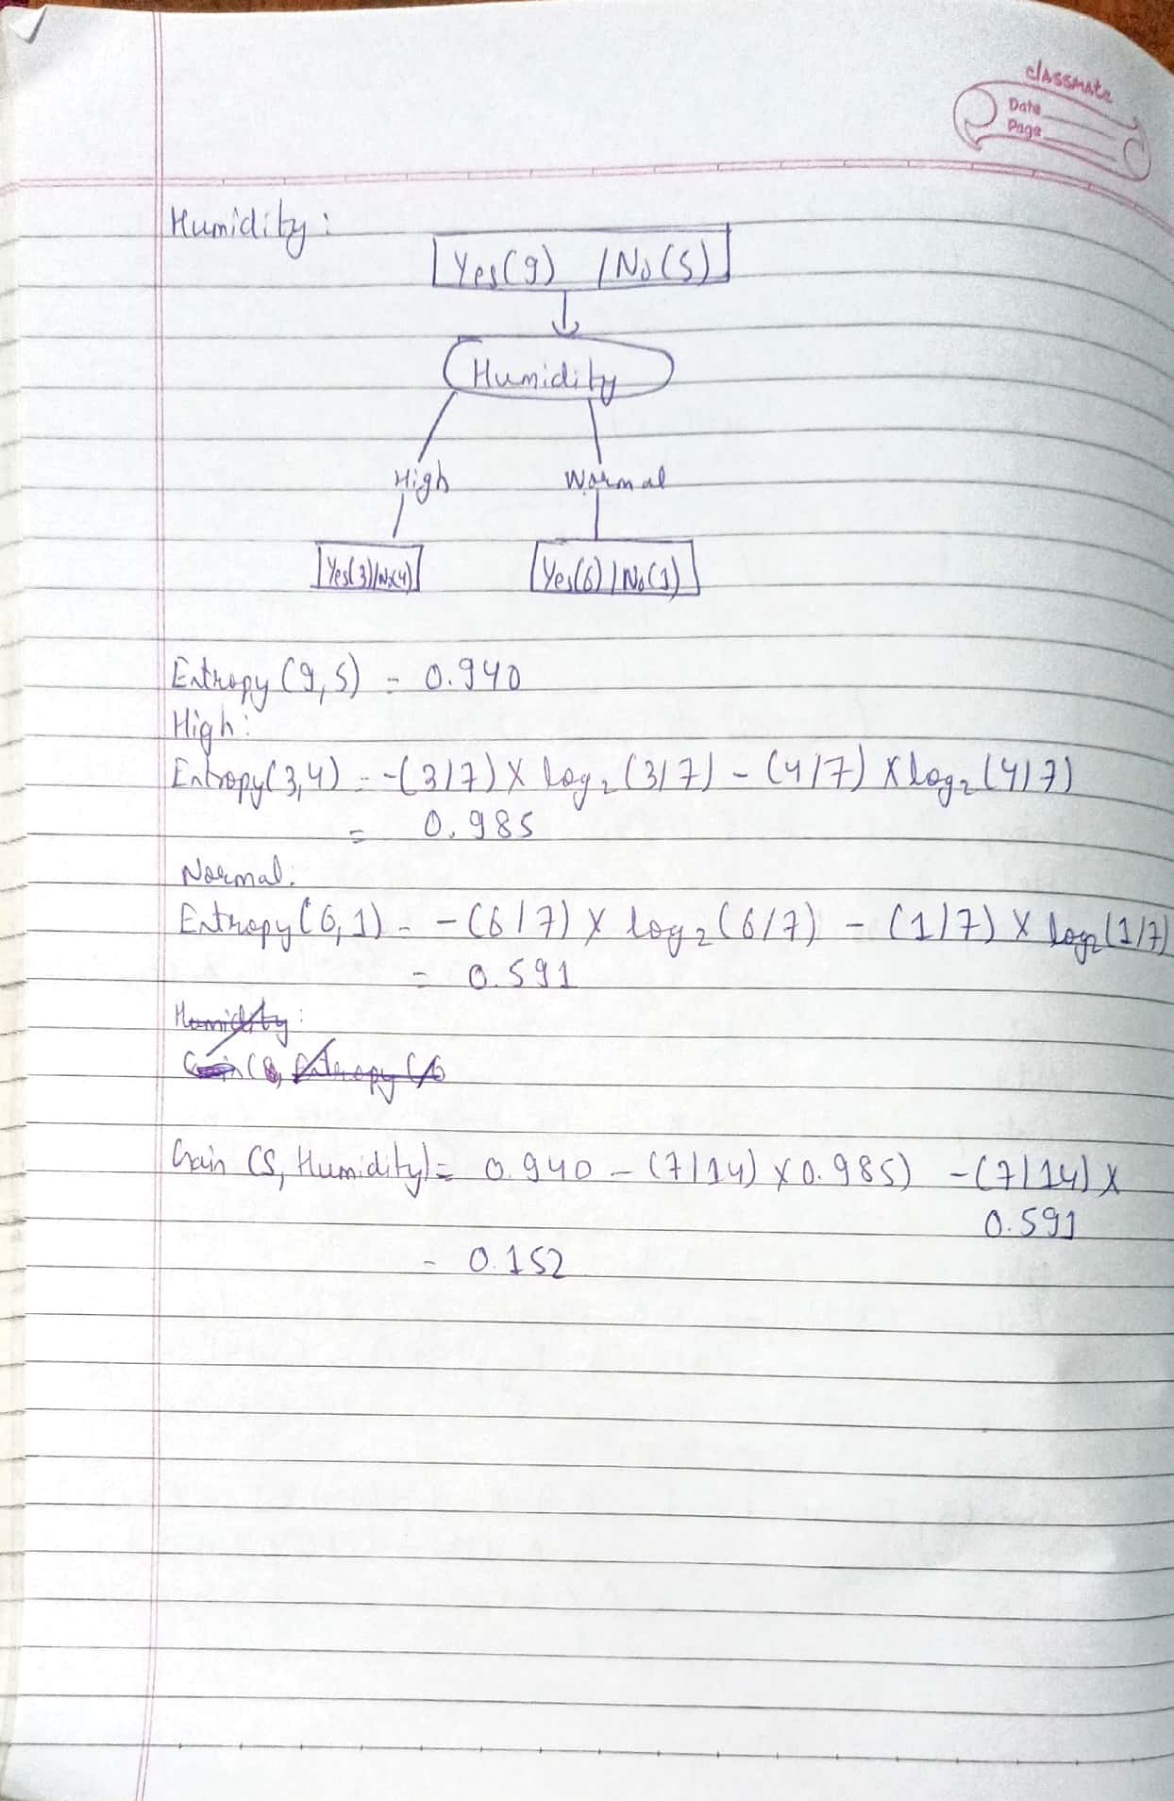 classmate
Date
Page
Humidity:
Yes(9) / No(5)
Humidity
High Normal
Yes(3)/No(4) Yes(6) / No(1)
Entropy (9,5) = 0.940
High:
Entropy(3,4) = -(3/7) × log₂ (3/7) - (4/7) × log₂ (4/7)
= 0.985
Normal:
Entropy(6,1) = -(6/7) × log₂ (6/7) - (1/7) × log₂ (1/7)
= 0.591
Humidity:
Gain (S, Entropy (6
Gain (S, Humidity) = 0.940 - (7/14) × 0.985) - (7/14) ×
0.591
= 0.152